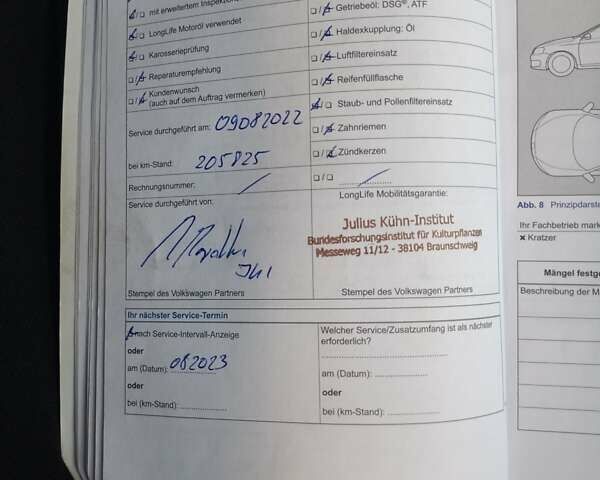 mit erweitertem
LongLife Motoröl verwendet
Karosserieprüfung
Reparaturempfehlung
Kundenwunsch
(auch auf dem Auftrag vermerken)
Service durchgeführt am: 09082022
bei km-Stand: 205825
Rechnungsnummer: /
Service durchgeführt von:
JKI
Stempel des Volkswagen Partners
Getriebeöl: DSG®, ATF
Haldexkupplung: Öl
Luftfiltereinsatz
Reifenfüllflasche
Staub- und Pollenfiltereinsatz
Zahnriemen
Zündkerzen
LongLife Mobilitätsgarantie:
Julius Kühn-Institut
Bundesforschungsinstitut für Kulturpflanzen
Messeweg 11/12 - 38104 Braunschweig
Stempel des Volkswagen Partners
Ihr nächster Service-Termin
nach Service-Intervall-Anzeige
oder
am (Datum): 082023
oder
bei (km-Stand):
Welcher Service/Zusatzumfang ist als nächster
erforderlich?
am (Datum):
oder
bei (km-Stand):
Abb. 8 Prinzipdarste
Ihr Fachbetrieb mark
× Kratzer
Mängel festge
Beschreibung der M